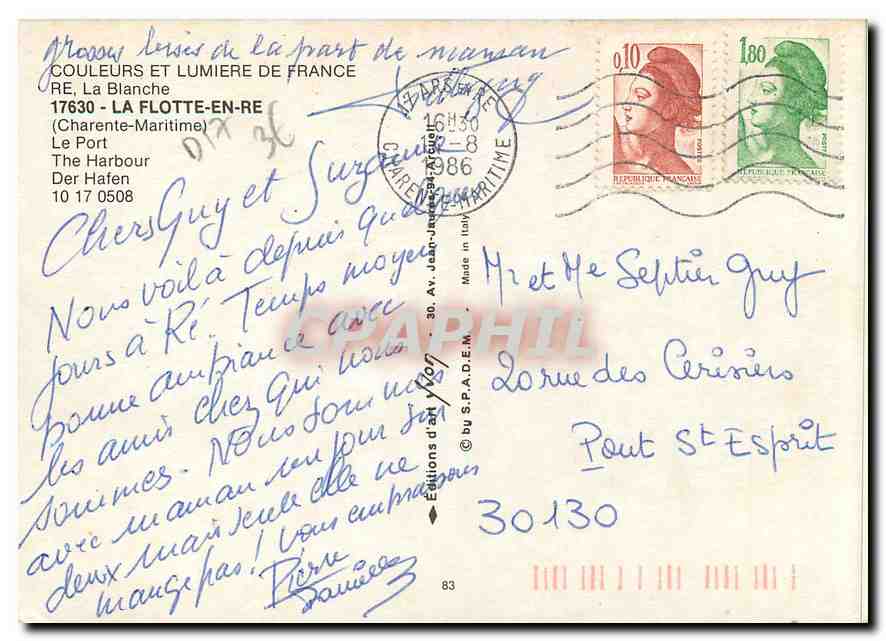 grosses bises de la part de maman
COULEURS ET LUMIERE DE FRANCE
RE, La Blanche
17630 - LA FLOTTE-EN-RE
(Charente-Maritime)
Le Port
The Harbour
Der Hafen
10 17 0508
DIX 3€
Chers Guy et Suzanne
Nous voilà depuis quelques
jours à Ré. Temps moyen
bonne ambiance avec
les amis chez qui nous
sommes. Nous sommes
avec maman un jour sur
deux mais seule elle ne
mange pas! Vous embrassons
Pierre
Danielle
ARS EN RE
16H30
-8
1986
CHARENTE-MARITIME
0,10
POSTES
REPUBLIQUE FRANÇAISE
1,80
POSTES
REPUBLIQUE FRANÇAISE
Editions d'art Yvon 30. Av. Jean-Jaurès-94-Arcueil
© by S.P.A.D.E.M. Made in Italy
Mr et Me Septier Guy
20 rue des Cerisiers
Pont St Esprit
30130
83
CPAPHIL